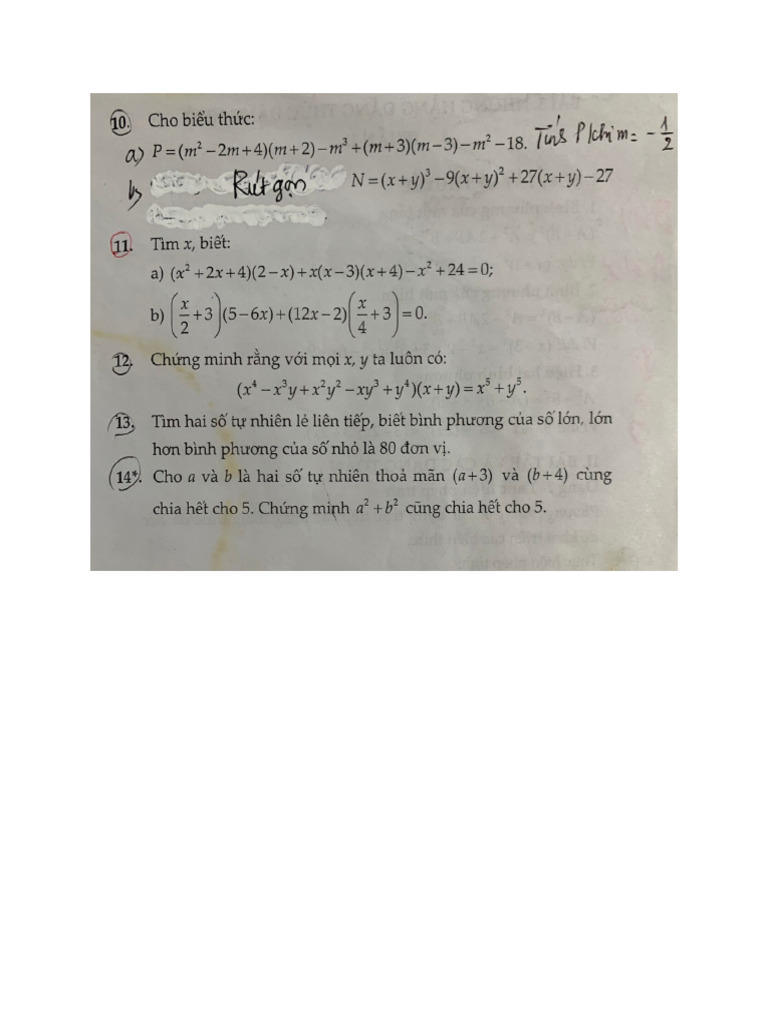 10. Cho biểu thức:
a) P = (m² − 2m + 4)(m + 2) − m³ + (m + 3)(m − 3) − m² − 18. Tính P khi m = −1/2
b) Rút gọn N = (x + y)³ − 9(x + y)² + 27(x + y) − 27
11. Tìm x, biết:
a) (x² + 2x + 4)(2 − x) + x(x − 3)(x + 4) − x² + 24 = 0;
b) (x/2 + 3)(5 − 6x) + (12x − 2)(x/4 + 3) = 0.
12. Chứng minh rằng với mọi x, y ta luôn có:
(x⁴ − x³y + x²y² − xy³ + y⁴)(x + y) = x⁵ + y⁵.
13. Tìm hai số tự nhiên lẻ liên tiếp, biết bình phương của số lớn, lớn
hơn bình phương của số nhỏ là 80 đơn vị.
14*. Cho a và b là hai số tự nhiên thoả mãn (a + 3) và (b + 4) cùng
chia hết cho 5. Chứng minh a² + b² cũng chia hết cho 5.